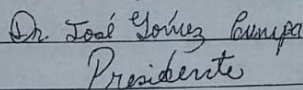 Dr. José Gómez Cumpa
Presidente